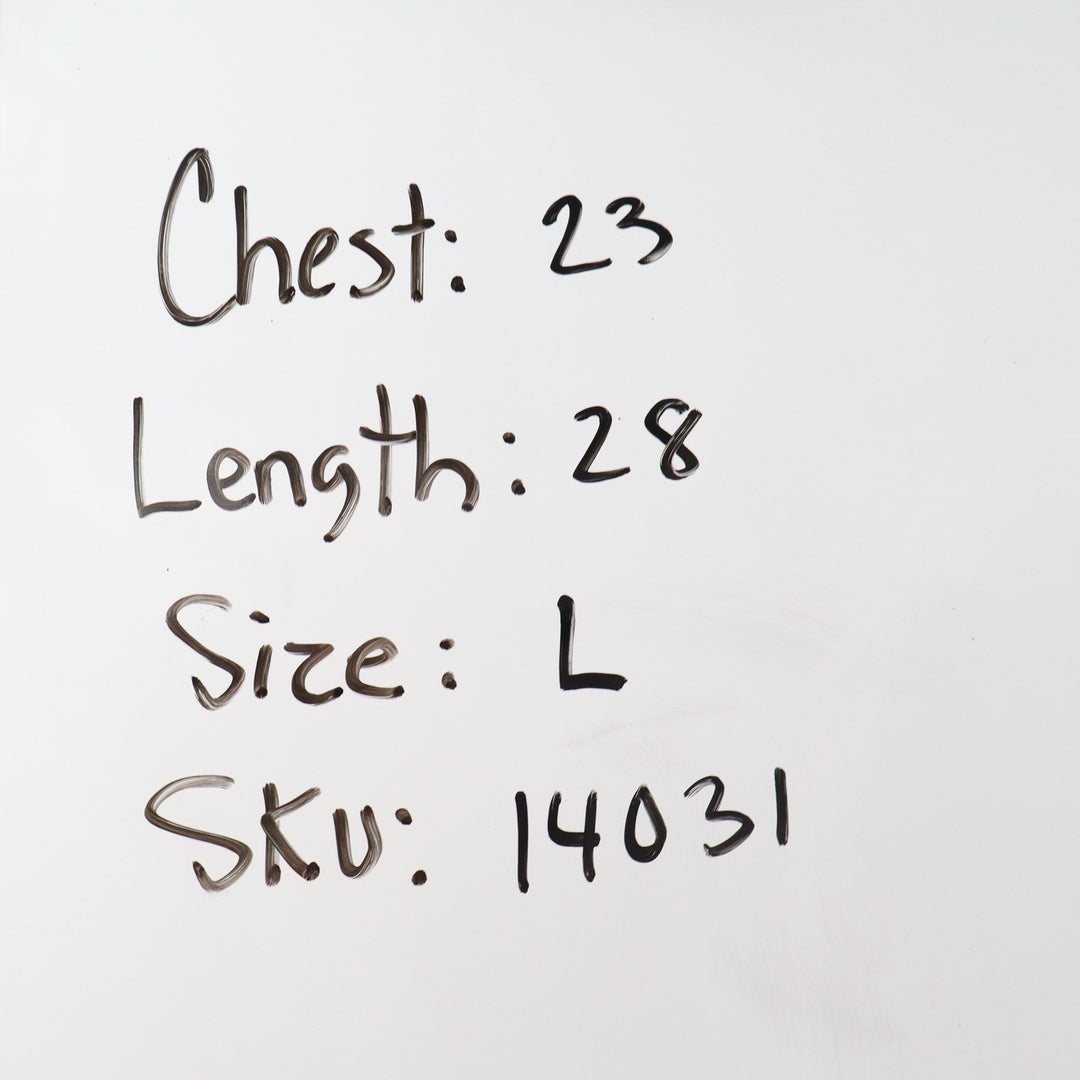 Chest: 23
Length: 28
Size: L
SKU: 14031